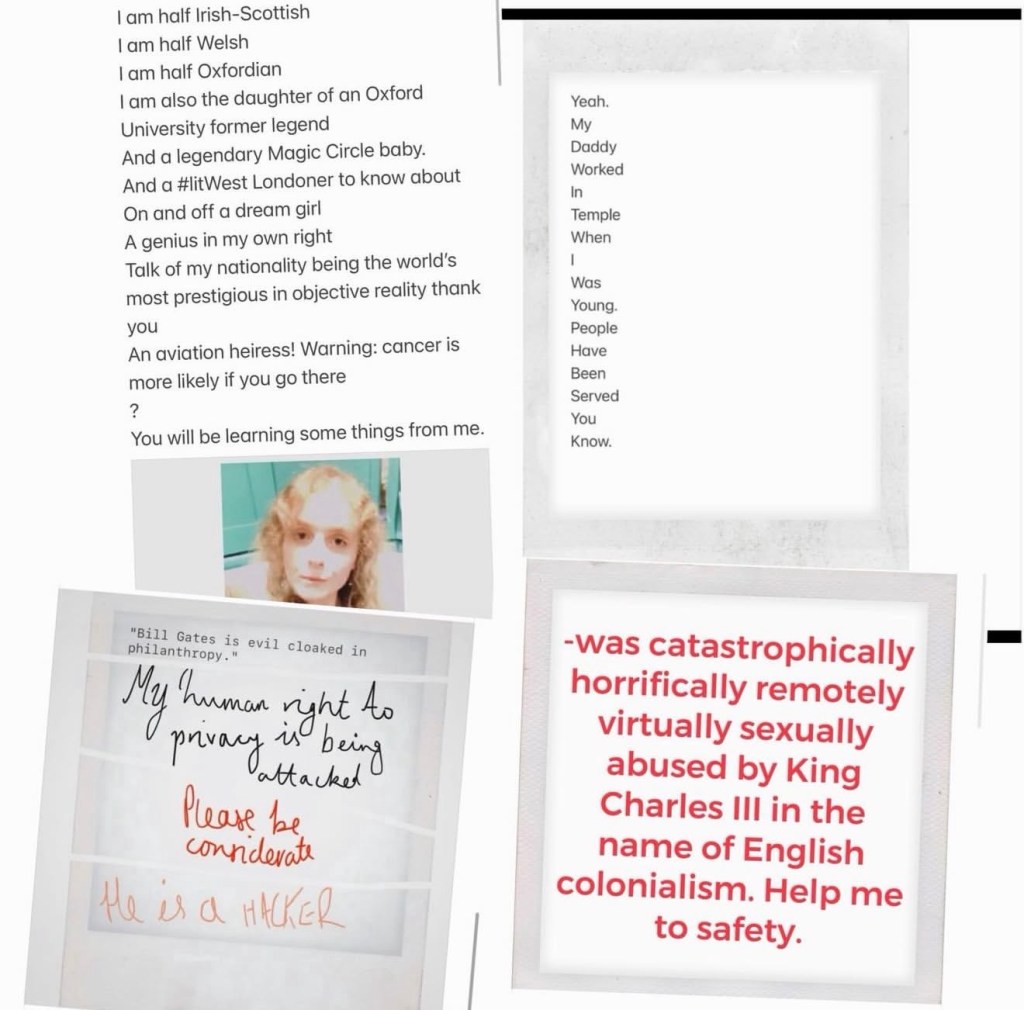 I am half Irish-Scottish
I am half Welsh
I am half Oxfordian
I am also the daughter of an Oxford
University former legend
And a legendary Magic Circle baby.
And a #litWest Londoner to know about
On and off a dream girl
A genius in my own right
Talk of my nationality being the world's
most prestigious in objective reality thank
you
An aviation heiress! Warning: cancer is
more likely if you go there
?
You will be learning some things from me.
Yeah.
My
Daddy
Worked
In
Temple
When
I
Was
Young.
People
Have
Been
Served
You
Know.
"Bill Gates is evil cloaked in
philanthropy."
My human right to
privacy is being
attacked
Please be
considerate
He is a HACKER
-was catastrophically
horrifically remotely
virtually sexually
abused by King
Charles III in the
name of English
colonialism. Help me
to safety.